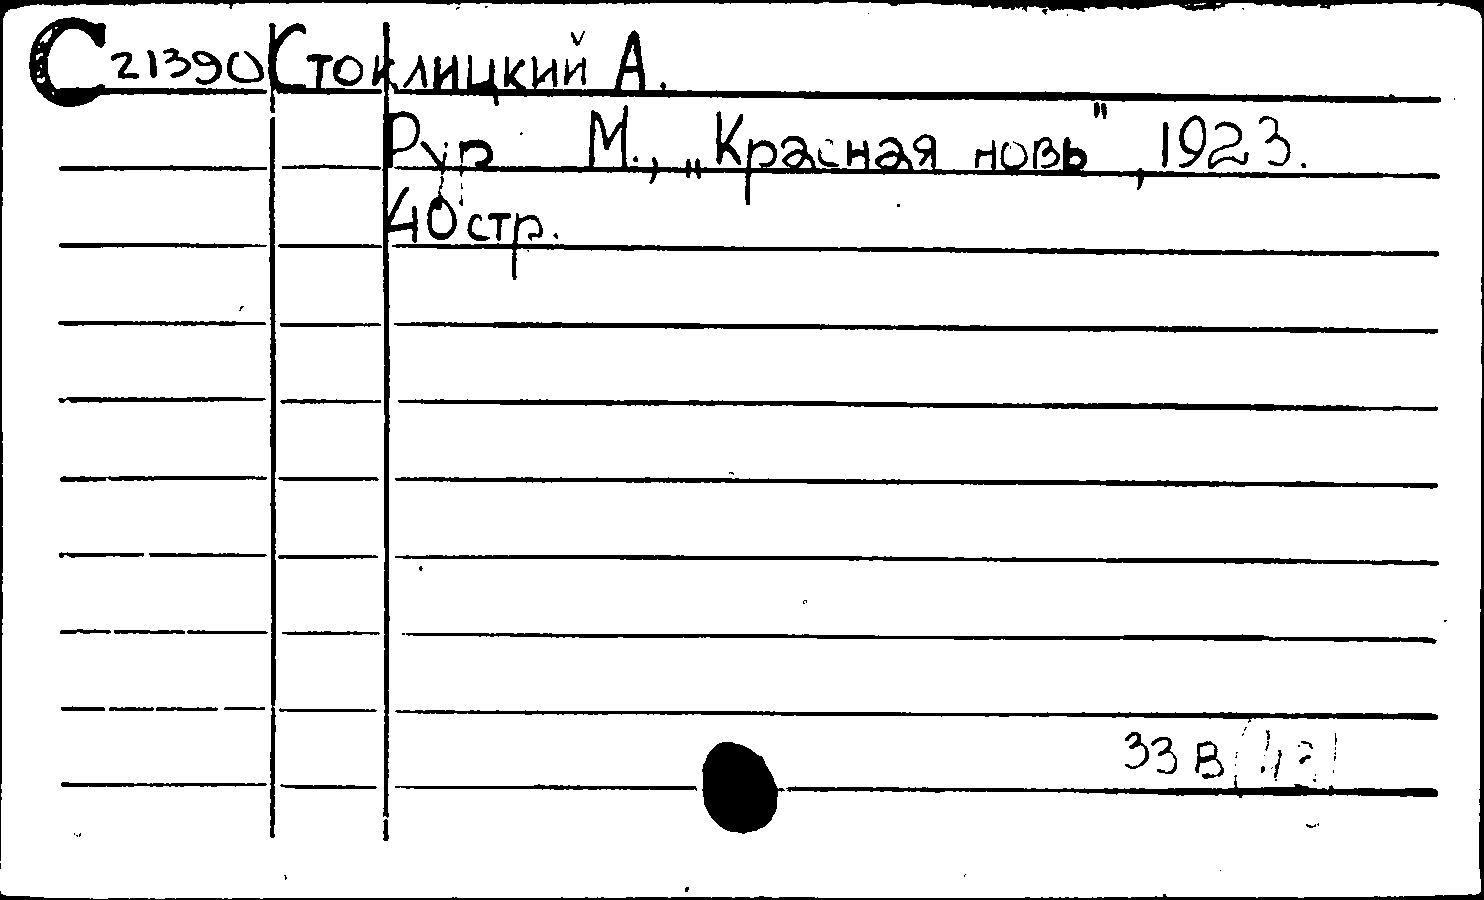 С 21390 Стоклицкий А.
Рур М., „Красная новь", 1923.
40 стр.
33 В